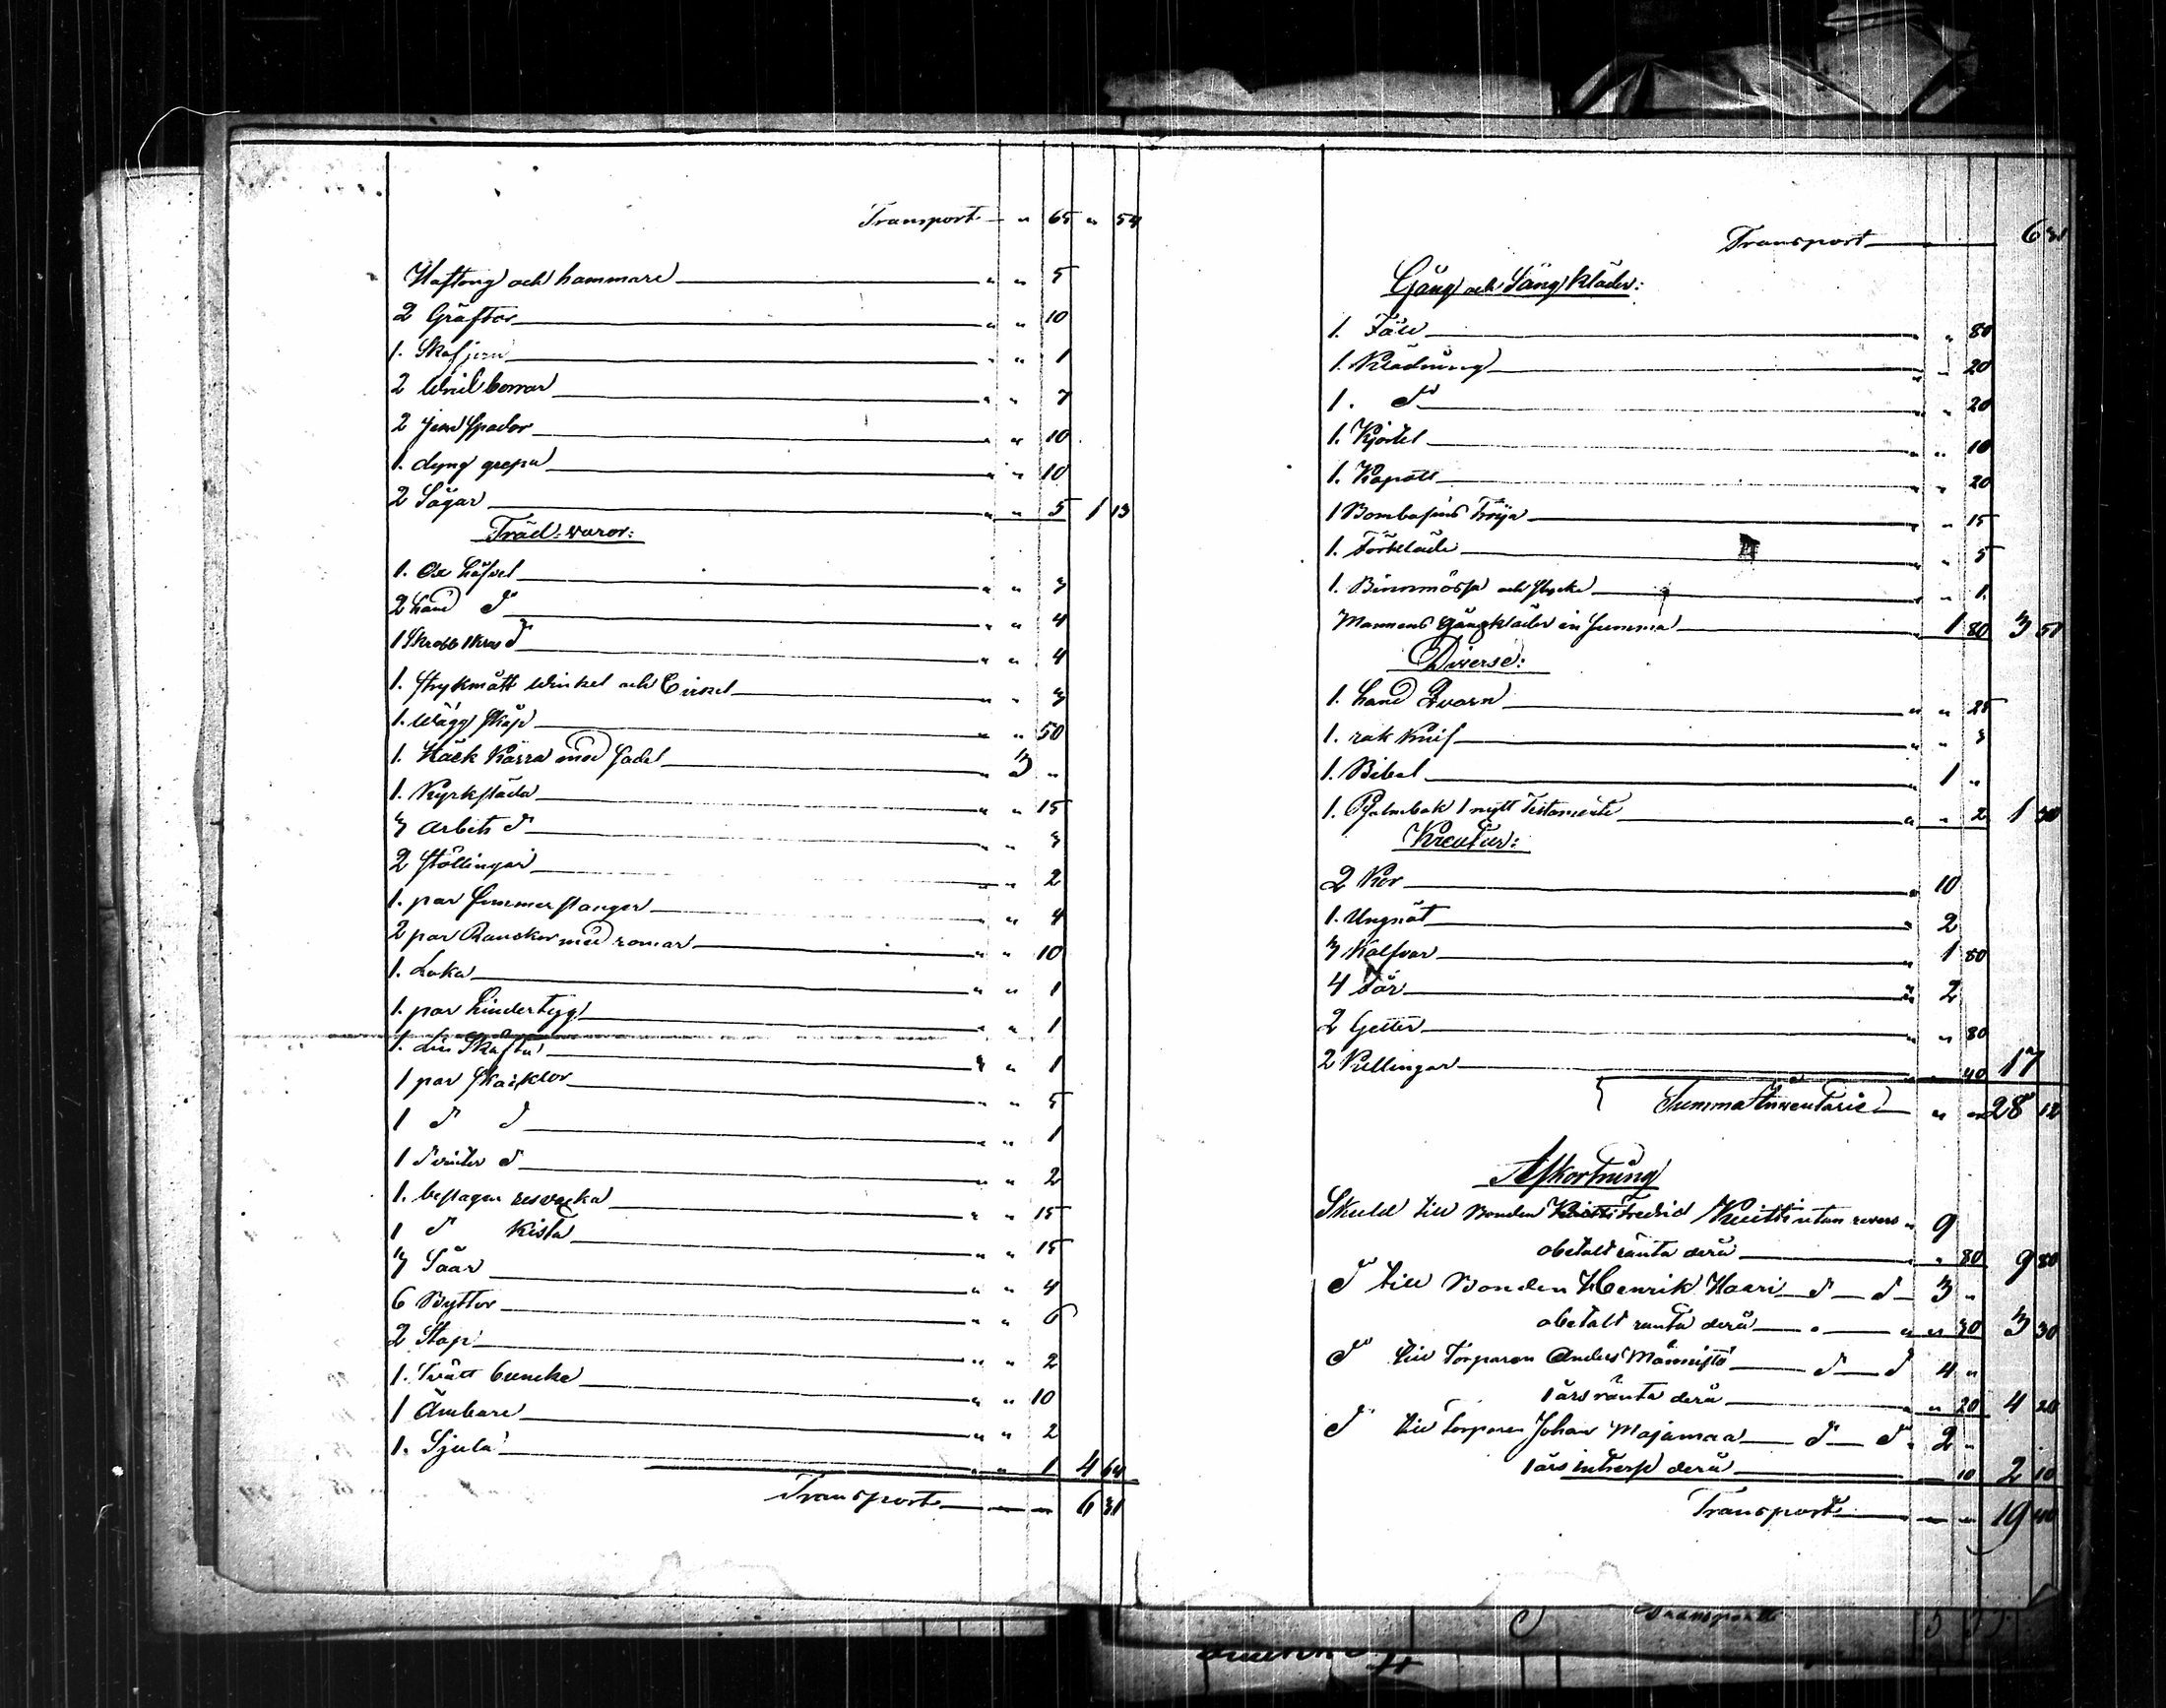 Transport " 65 " 54
Hoftong och hammare " " 5
2 Gräftor " " 10
1. Skafjern " " 1
2 Wrid borrar " " 7
2 jern Spador " " 10
1. dyng grepa " " 10
2 Sågar " " 5 1 13
Träd-varor:
1. Ox häfvel " " 3
2 hand d:o " " 4
1 d:o " " 4
1. strykmått winkel och Cirkel " " 3
1. wägg skåp " " 50
1. Häck Kärra med sadel " 3 "
1. Kyrksläda " " 15
3 arbets d:o " " 3
2 stöttingar " " 2
1. par stänger " " 4
2 par Ranckor med romar " " 10
1. Loka " " 1
1. par hindertyg " " 1
1. Lin Skäkta " " 1
1 par skacklor " " 5
1 d:o d:o " " 1
1 d:o vinter d:o " " 2
1. beslagen reswacka " " 15
1 d:o Kista " " 15
3 Såar " " 4
6 Byttor " " 6
2 Stap " " 2
1. Tvätt buncka " " 10
1 Ämbare " " 2
1. Sjula " " 1 4 64
Transport 6 31
Transport 6 31
Gång och Säng Kläder:
1. Fäll " 80
1. Klädning " " 20
1. d:o " " 20
1. Kjortel " " 10
1. Kapott " " 20
1 Bombasins Tröja " " 15
1. Förkläde " " 5
1. Bindmössa och stycke " " 1
Mannens Gångkläder in Summa 1 80 3 51
Diverse:
1. hand Qvarn " " 25
1. rak knif " " 3
1. Bibel 1 "
1. Psalmbok 1 nytt Testamente " " 2 1 30
Kreatur:
2 Kor " 10
1. Ungnöt " 2
3 Kalfvar " 1 80
4 Får " 2
2 Getter " " 80
2 Killingar " " 40 17
Summa Inventarie " " 28 12
Afkortning
Skuld till Bonden Fredrid Knitti utan revers " 9
obetalt ränta derå " 80 9 80
d:o till Bonden Henrik Haari d:o d:o 3 "
obetalt ränta derå " " 30 3 30
d:o till Torparen Anders Männistö d:o d:o 4 "
1 års ränta derå " " 20 4 20
d:o till Torparen Johan Majamaa d:o d:o 2 "
1 års intresse derå 10 2 10
Transport 19 40
Transport